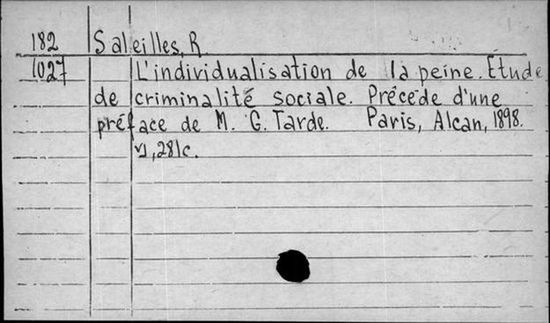 182 Saleilles, R.
1027 L'individualisation de la peine. Etude
de criminalité sociale. Précédé d'une
préface de M. G. Tarde. Paris, Alcan, 1898.
281c.